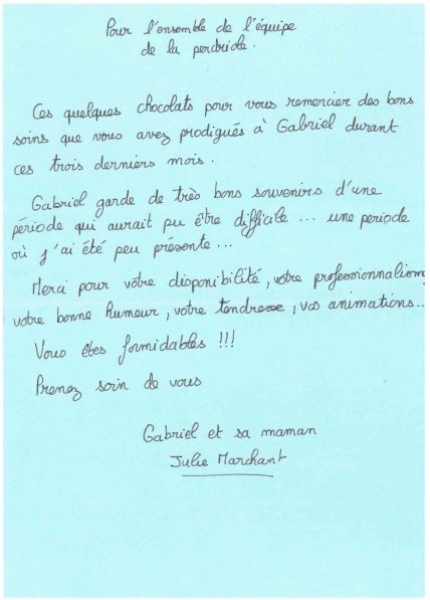 Pour l'ensemble de l'équipe
de la perdriole.
Ces quelques chocolats pour vous remercier des bons
soins que vous avez prodigués à Gabriel durant
ces trois derniers mois.
Gabriel garde de très bons souvenirs d'une
période qui aurait pu être difficile ... une periode
où j'ai été peu présente ...
Merci pour votre disponibilité, votre professionnalism
votre bonne humeur, votre tendresse, vos animations...
Vous êtes formidables !!!
Prenez soin de vous
Gabriel et sa maman
Julie Marchant